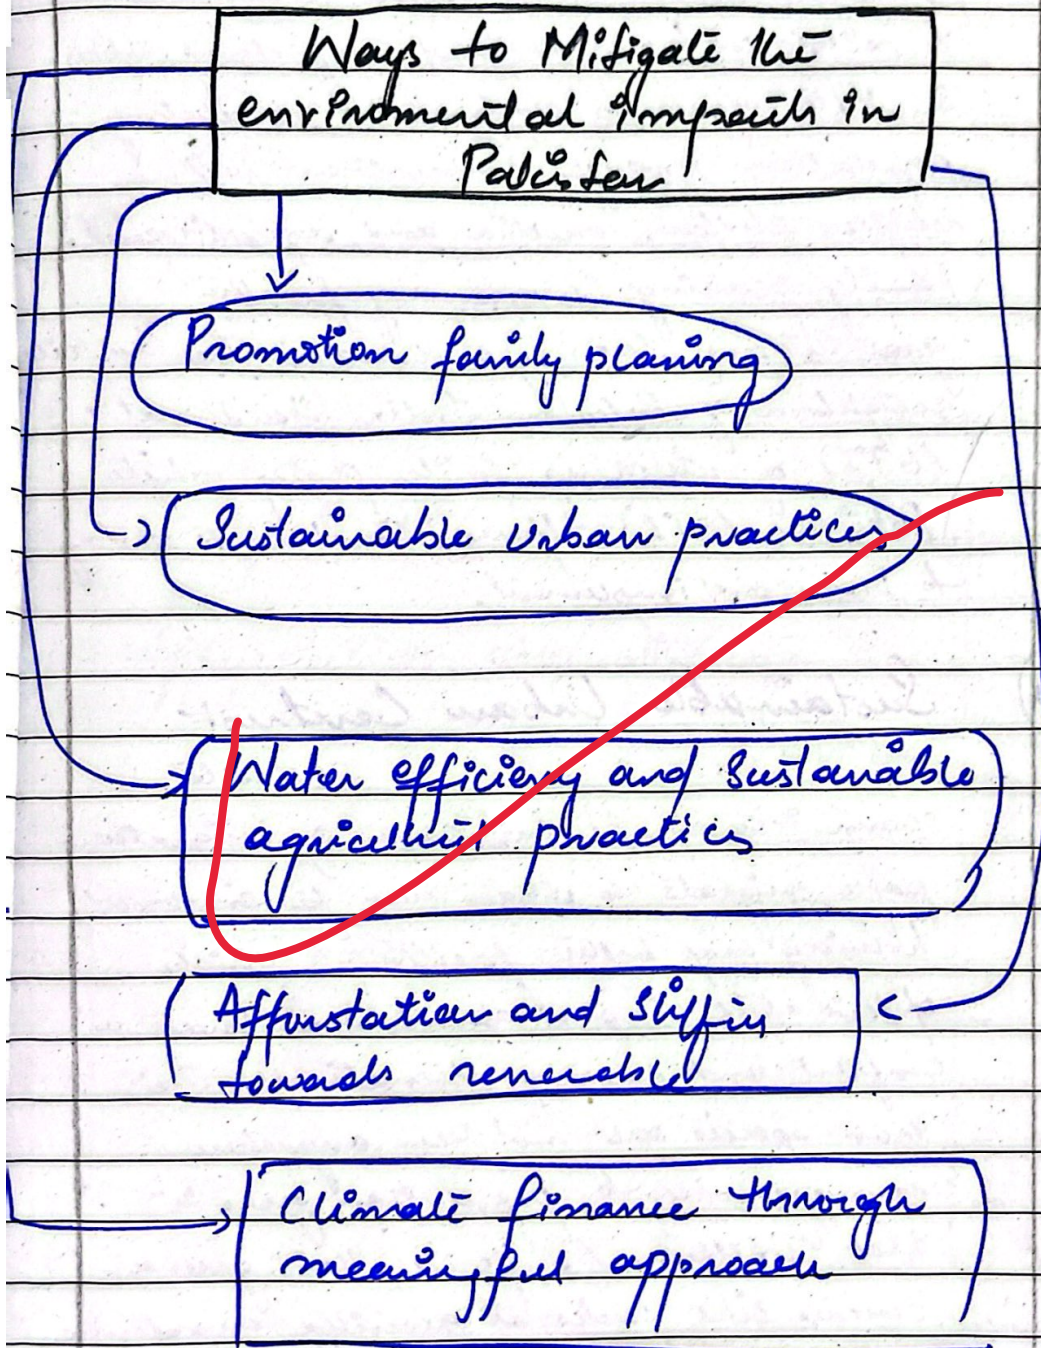 Ways to Mitigate the
enviromental impacts in
Pakistan
Promotion family planing
Sustainable Urban practices
Water efficiency and Sustainable
agricultut practics
Afforstation and Shiffin
towards renewable
Climate finance through
meaningful approach